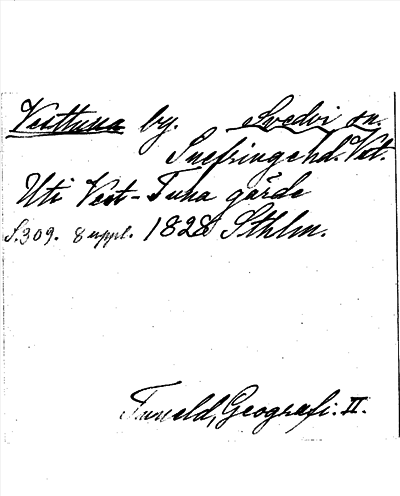 Vesttuna by. Svedvi sn.
Snefringe hd. Vstm.
Uti Vest-Tuna gärde
S.309. 8 uppl. 1828 Sthlm.
Tuneld, Geografi. II.